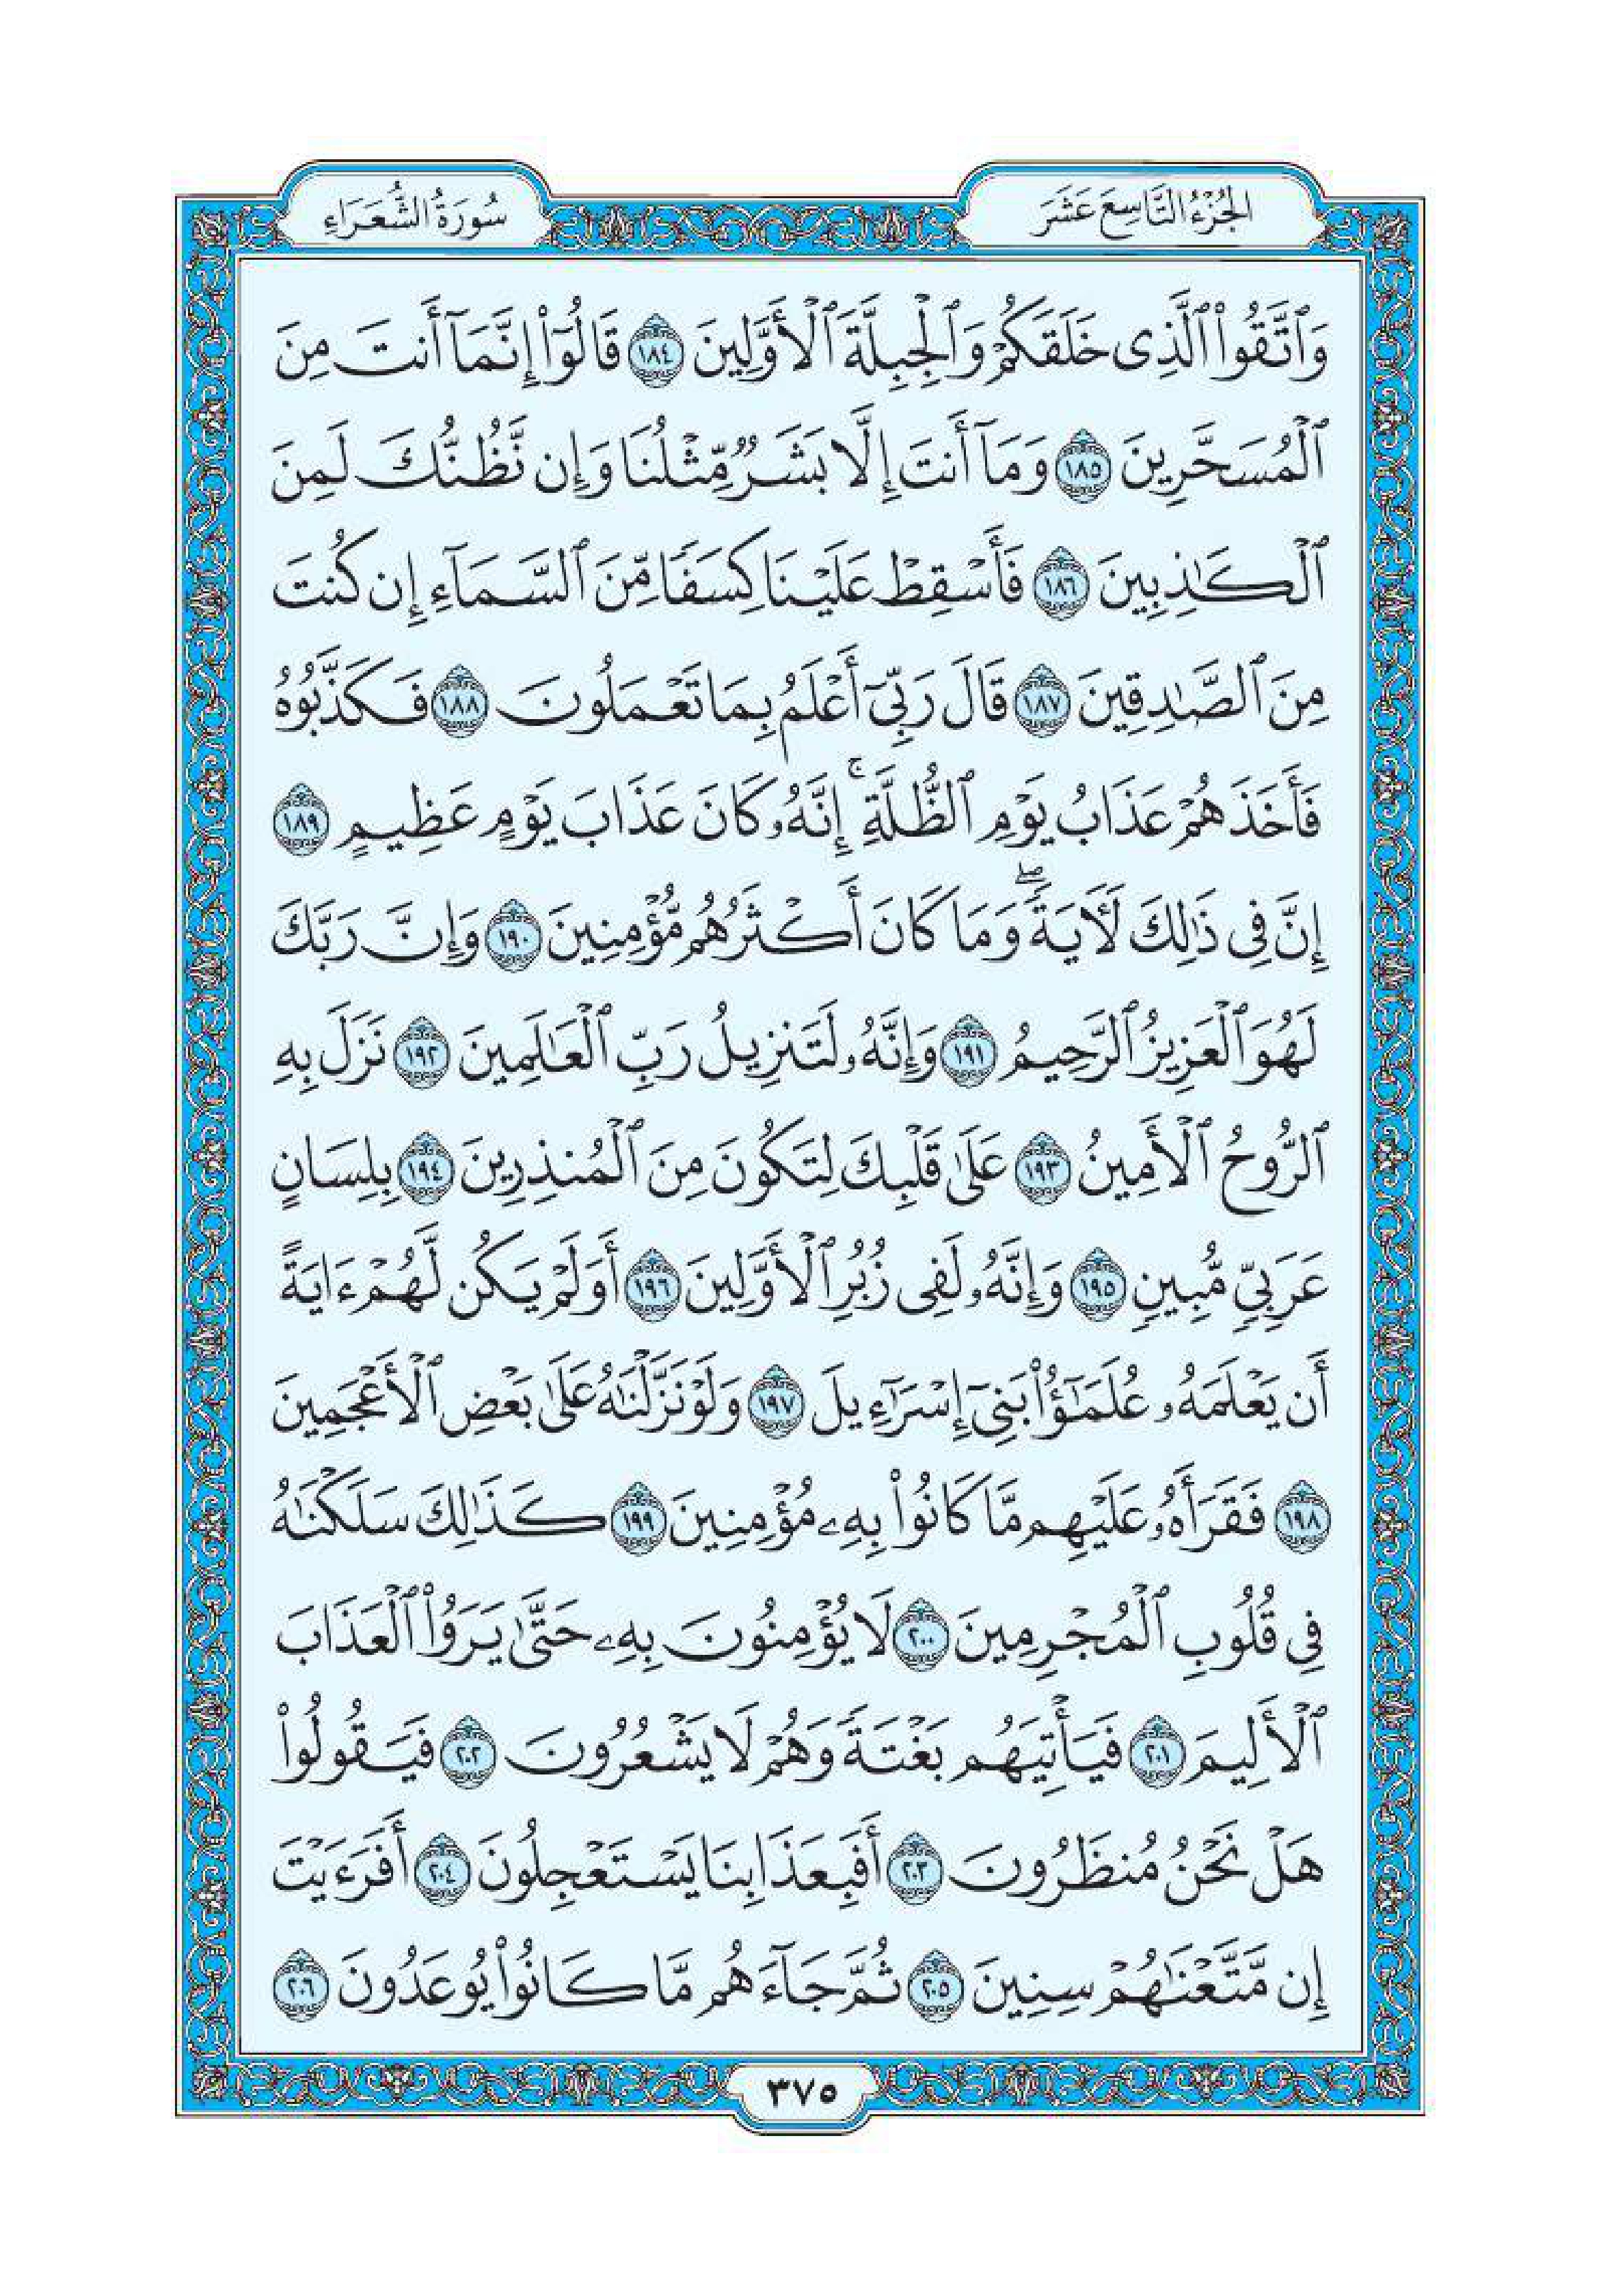 الجُزْءُ التَّاسِعَ عَشَرَ
سُورَةُ الشُّعَرَاءِ
وَٱتَّقُوا۟ ٱلَّذِى خَلَقَكُمْ وَٱلْجِبِلَّةَ ٱلْأَوَّلِينَ ١٨٤ قَالُوٓا۟ إِنَّمَآ أَنتَ مِنَ
ٱلْمُسَحَّرِينَ ١٨٥ وَمَآ أَنتَ إِلَّا بَشَرٌ مِّثْلُنَا وَإِن نَّظُنُّكَ لَمِنَ
ٱلْكَٰذِبِينَ ١٨٦ فَأَسْقِطْ عَلَيْنَا كِسَفًا مِّنَ ٱلسَّمَآءِ إِن كُنتَ
مِنَ ٱلصَّٰدِقِينَ ١٨٧ قَالَ رَبِّىٓ أَعْلَمُ بِمَا تَعْمَلُونَ ١٨٨ فَكَذَّبُوهُ
فَأَخَذَهُمْ عَذَابُ يَوْمِ ٱلظُّلَّةِ ۚ إِنَّهُۥ كَانَ عَذَابَ يَوْمٍ عَظِيمٍ ١٨٩
إِنَّ فِى ذَٰلِكَ لَأَيَةً ۖ وَمَا كَانَ أَكْثَرُهُم مُّؤْمِنِينَ ١٩٠ وَإِنَّ رَبَّكَ
لَهُوَ ٱلْعَزِيزُ ٱلرَّحِيمُ ١٩١ وَإِنَّهُۥ لَتَنزِيلُ رَبِّ ٱلْعَٰلَمِينَ ١٩٢ نَزَلَ بِهِ
ٱلرُّوحُ ٱلْأَمِينُ ١٩٣ عَلَىٰ قَلْبِكَ لِتَكُونَ مِنَ ٱلْمُنذِرِينَ ١٩٤ بِلِسَانٍ
عَرَبِىٍّ مُّبِينٍ ١٩٥ وَإِنَّهُۥ لَفِى زُبُرِ ٱلْأَوَّلِينَ ١٩٦ أَوَلَمْ يَكُن لَّهُمْ ءَايَةً
أَن يَعْلَمَهُۥ عُلَمَٰٓؤُا۟ بَنِىٓ إِسْرَٰٓءِيلَ ١٩٧ وَلَوْ نَزَّلْنَٰهُ عَلَىٰ بَعْضِ ٱلْأَعْجَمِينَ
١٩٨ فَقَرَأَهُۥ عَلَيْهِم مَّا كَانُوا۟ بِهِۦ مُؤْمِنِينَ ١٩٩ كَذَٰلِكَ سَلَكْنَٰهُ
فِى قُلُوبِ ٱلْمُجْرِمِينَ ٢٠٠ لَا يُؤْمِنُونَ بِهِۦ حَتَّىٰ يَرَوُا۟ ٱلْعَذَابَ
ٱلْأَلِيمَ ٢٠١ فَيَأْتِيَهُم بَغْتَةً وَهُمْ لَا يَشْعُرُونَ ٢٠٢ فَيَقُولُوا۟
هَلْ نَحْنُ مُنظَرُونَ ٢٠٣ أَفَبِعَذَابِنَا يَسْتَعْجِلُونَ ٢٠٤ أَفَرَءَيْتَ
إِن مَّتَّعْنَٰهُمْ سِنِينَ ٢٠٥ ثُمَّ جَآءَهُم مَّا كَانُوا۟ يُوعَدُونَ ٢٠٦
٣٧٥